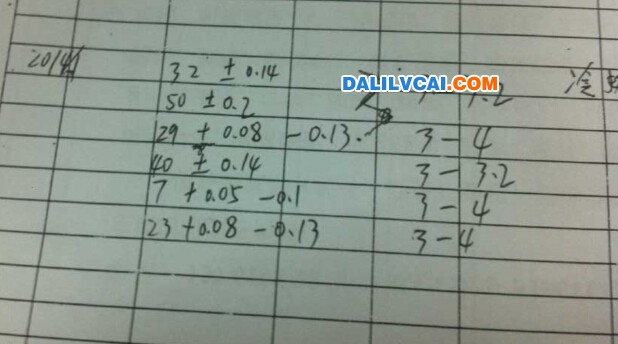 2014
32 ± 0.14
DALILVCAI.COM
50 ± 0.2 .2 准
29 + 0.08 - 0.13. 3 - 4
40 ± 0.14 3 - 3.2
7 + 0.05 - 0.1 3 - 4
23 + 0.08 - 0.13 3 - 4